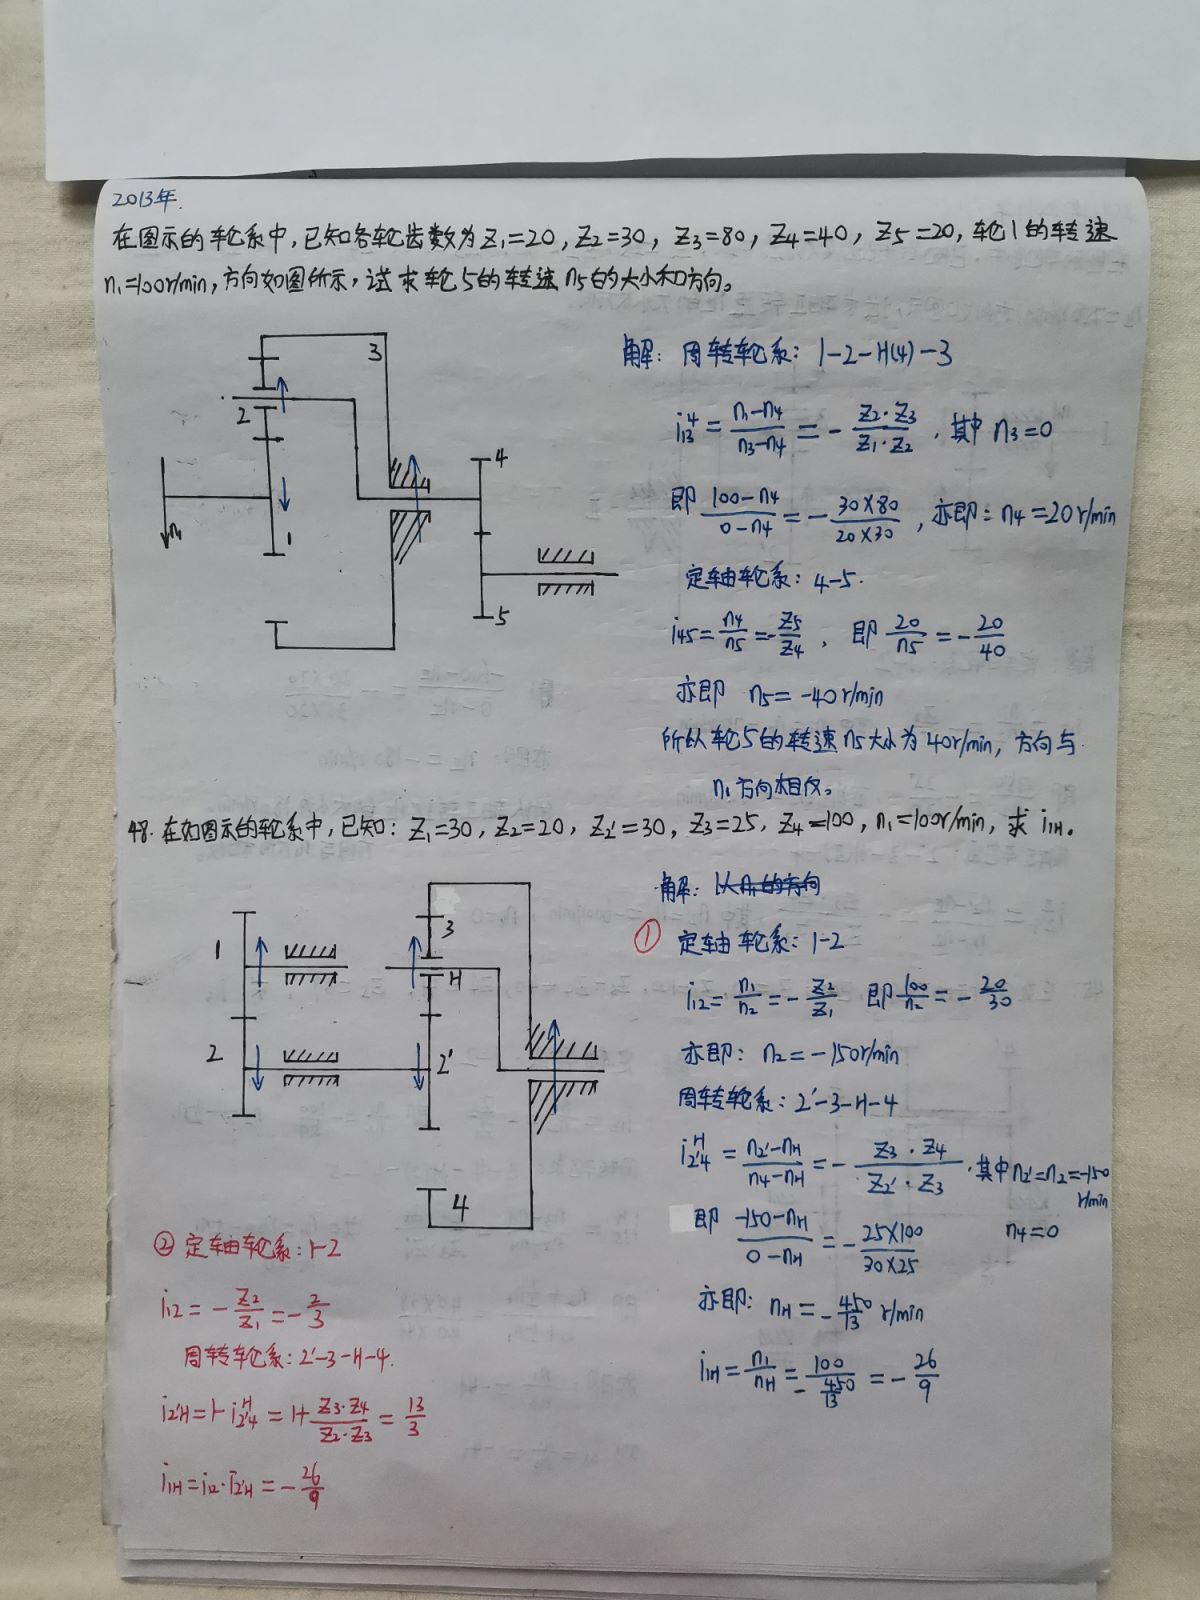 2013年.
在图示的轮系中,已知各轮齿数为Z₁=20,Z₂=30,Z₃=80,Z₄=40,Z₅=20,轮1的转速
n₁=100r/min,方向如图所示,试求轮5的转速n₅的大小和方向。
3
2
4
1
n₁
5
解: 周转轮系: 1-2-H(4)-3
i₁₃⁴ = (n₁-n₄)/(n₃-n₄) = - (Z₂·Z₃)/(Z₁·Z₂) , 其中 n₃=0
即 (100-n₄)/(0-n₄) = - (30×80)/(20×30) , 亦即: n₄=20r/min
定轴轮系: 4-5.
i₄₅ = n₄/n₅ = - Z₅/Z₄ , 即 20/n₅ = - 20/40
亦即 n₅=-40r/min
所以轮5的转速n₅大小为40r/min, 方向与
n₁方向相反。
48. 在如图示的轮系中,已知: Z₁=30, Z₂=20, Z₂'=30, Z₃=25, Z₄=100, n₁=100r/min, 求 i₁H。
1
3
H
2
2'
4
解: 以n₁的方向
① 定轴轮系: 1-2
i₁₂ = n₁/n₂ = - Z₂/Z₁ 即 100/n₂ = - 20/30
亦即: n₂=-150r/min
周转轮系: 2'-3-H-4
i₂'₄ᴴ = (n₂'-nH)/(n₄-nH) = - (Z₃·Z₄)/(Z₂'·Z₃) . 其中n₂'=n₂=-150
r/min
即 (-150-nH)/(0-nH) = - (25×100)/(30×25) n₄=0
亦即: nH = - 450/13 r/min
i₁H = n₁/nH = 100/(-450/13) = - 26/9
② 定轴轮系: 1-2
i₁₂ = - Z₂/Z₁ = - 2/3
周转轮系: 2'-3-H-4.
i₂'H = 1-i₂'₄ᴴ = 1+ (Z₃·Z₄)/(Z₂'·Z₃) = 13/3
i₁H = i₁₂·i₂'H = - 26/9